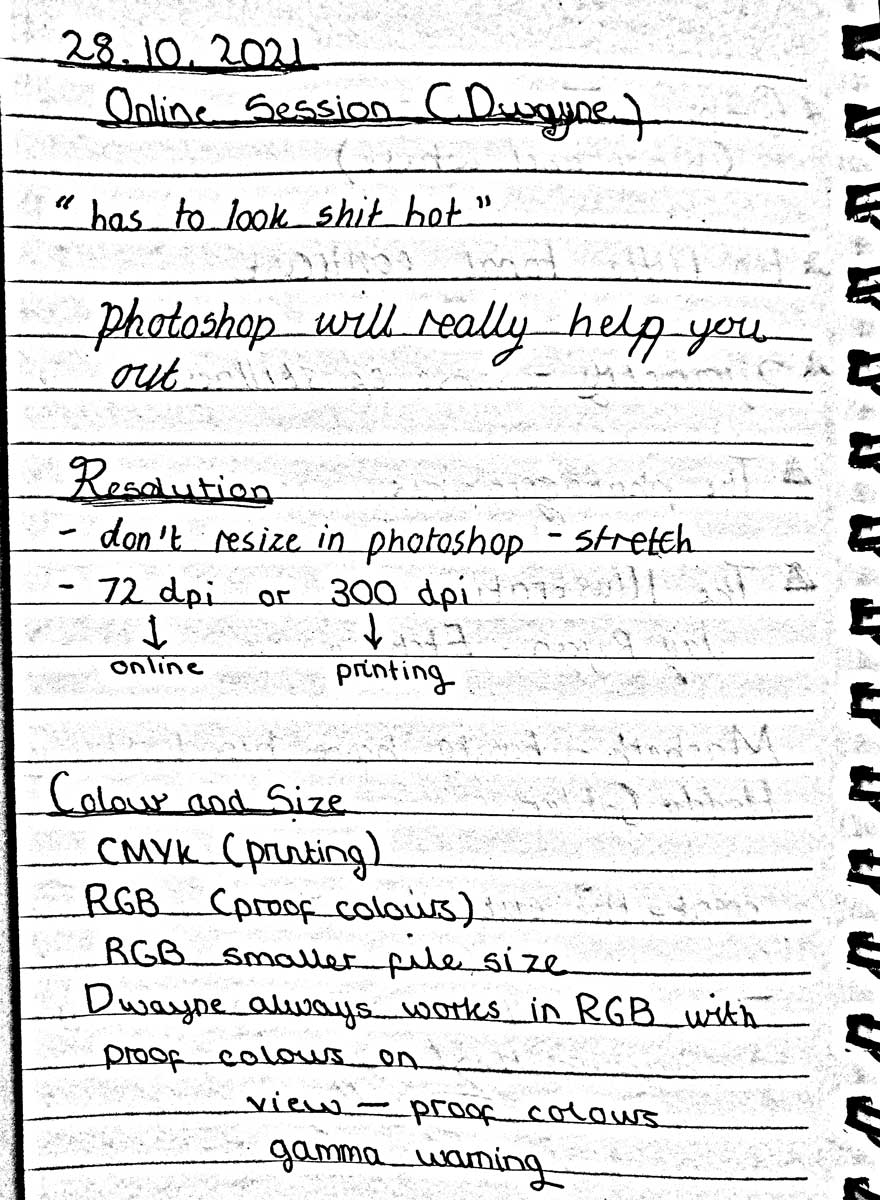 28.10.2021
Online Session (Dwayne)
"has to look shit hot"
Photoshop will really help you
out
Resolution
- don't resize in photoshop - stretch
- 72 dpi or 300 dpi
↓ ↓
online printing
Colour and Size
CMYK (printing)
RGB (proof colours)
RGB smaller file size
Dwayne always works in RGB with
proof colours on
view — proof colours
gamma warning